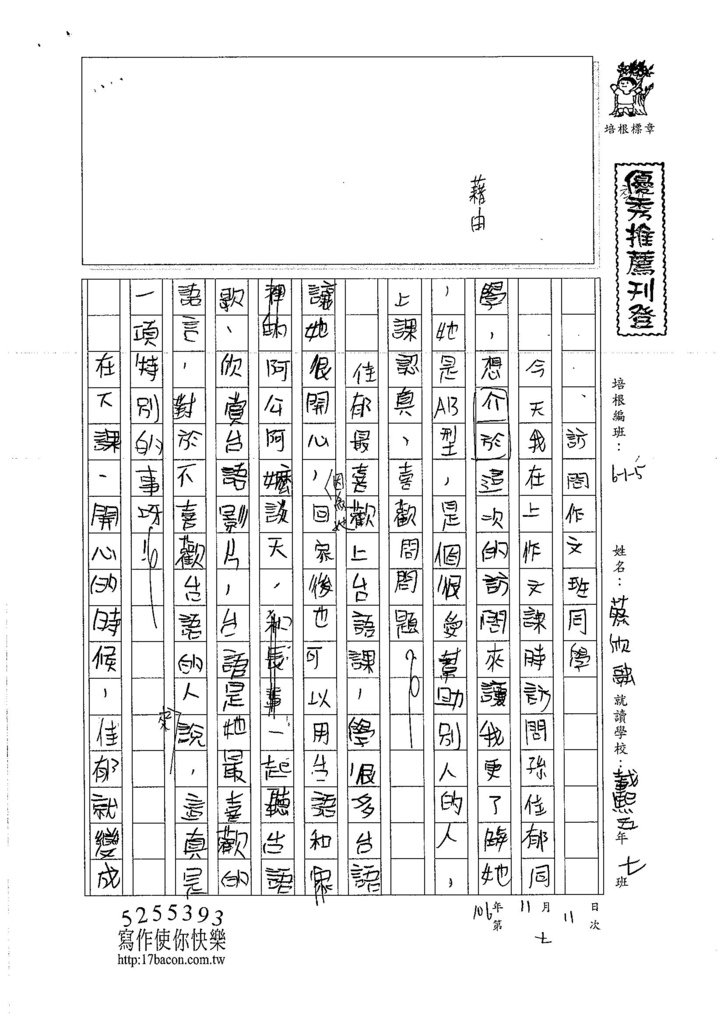 培根標章
優秀推薦刊登
培根編班：
姓名：蔡欣融
就讀學校：戴熙五年七班
106年11月11日
第七次
藉由
訪問作文班同學
今天我在上作文課時訪問孫佳郁同
學，想介於這次的訪問來讓我更了解她
，她是AB型，是個很愛幫助別人的人，
上課認真，喜歡問問題。
佳郁最喜歡上台語課，學很多台語
讓她很開心，因為她回家後也可以用台語和家
裡的阿公阿嬤談天，和長輩一起聽台語
歌、欣賞台語影片，台語是她最喜歡的
語言，對於不喜歡台語的人來說，這真是
一項特別的事呀！
在下課、開心的時候，佳郁就變成
5255393
寫作使你快樂
http:17bacon.com.tw